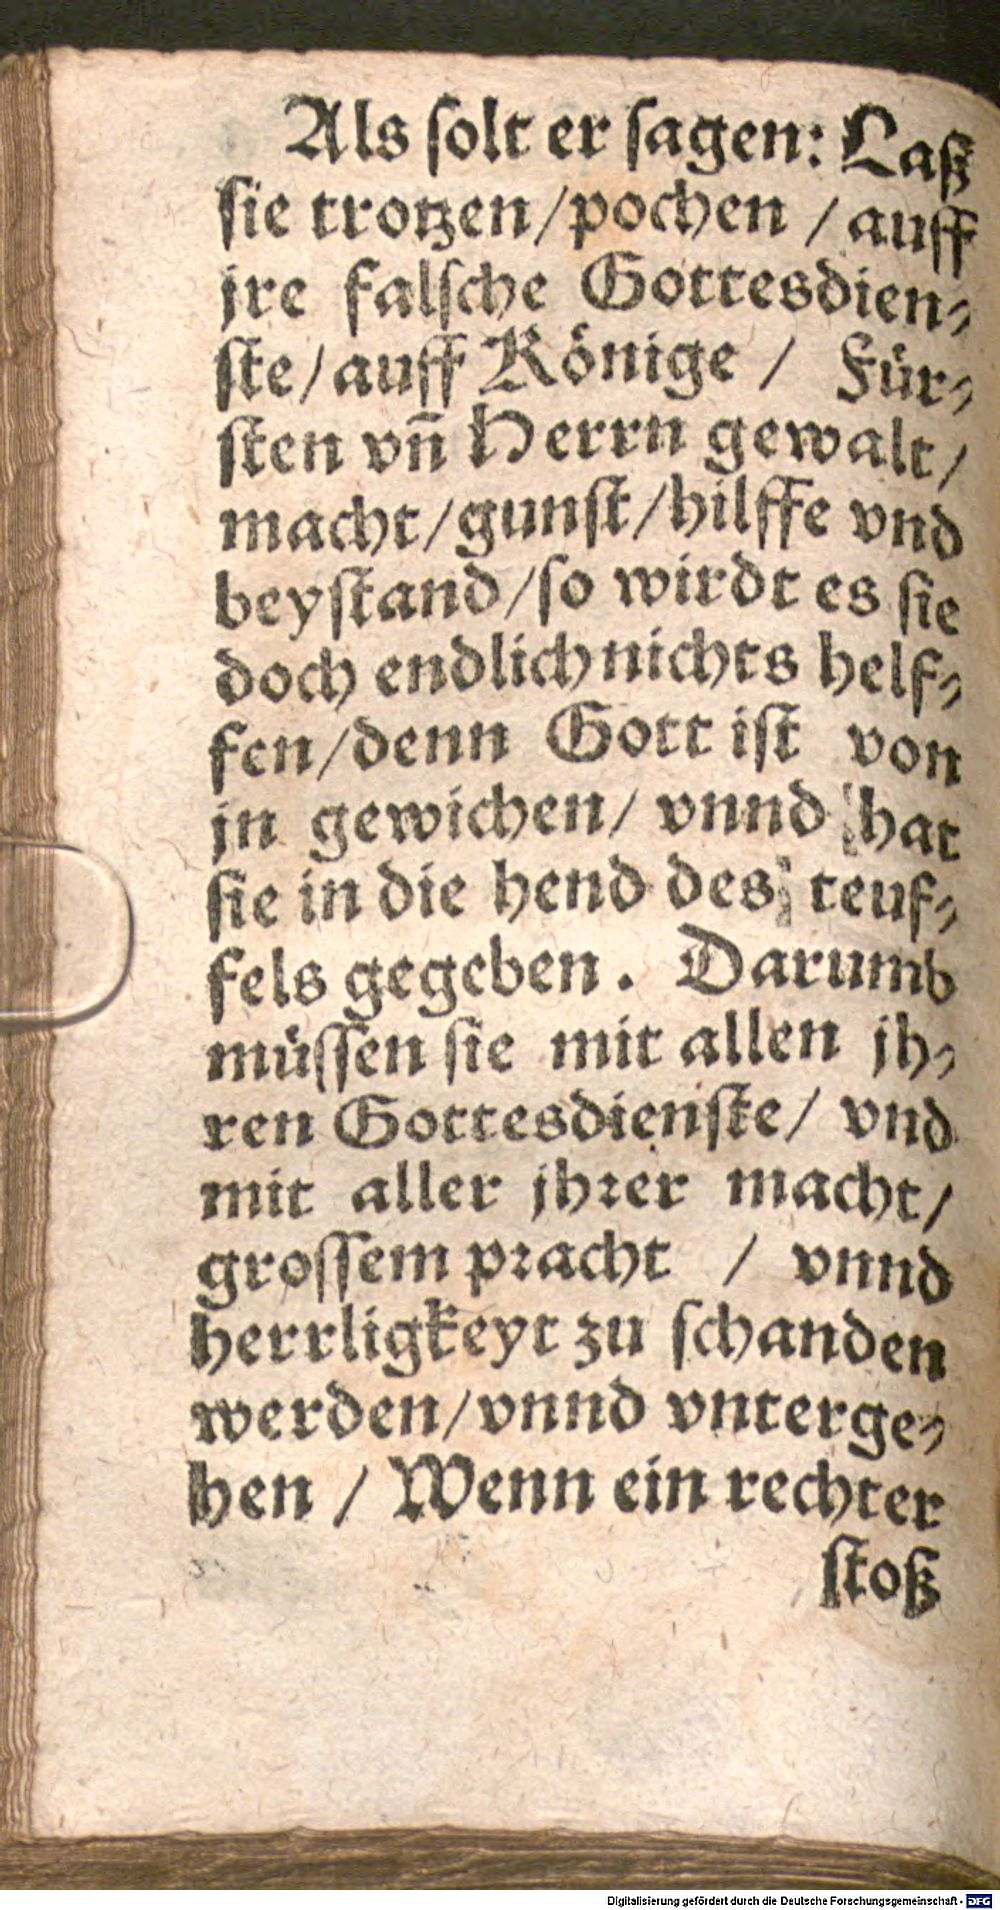 Als ſolt er ſagen: Laß
ſie trotzen/pochen / auff
jre falſche Gottesdien⸗
ſte/auff Könige / Für⸗
ſten vñ Herrn gewalt/
macht/gunſt/hilffe vnd
beyſtand/ſo wirdt es ſie
doch endlich nichts helf⸗
fen/denn Gott iſt von
jn gewichen/ vnnd hat
ſie in die hend des teuf⸗
fels gegeben. Darumb
müſſen ſie mit allen jh⸗
ren Gottesdienſte/ vnd
mit aller jhꝛer macht/
groſſem pꝛacht / vnnd
herrligkeyt zu ſchanden
werden/vnnd vnterge⸗
hen / Wenn ein rechter
ſtoß
Digitalisierung gefördert durch die Deutsche Forschungsgemeinschaft - DFG